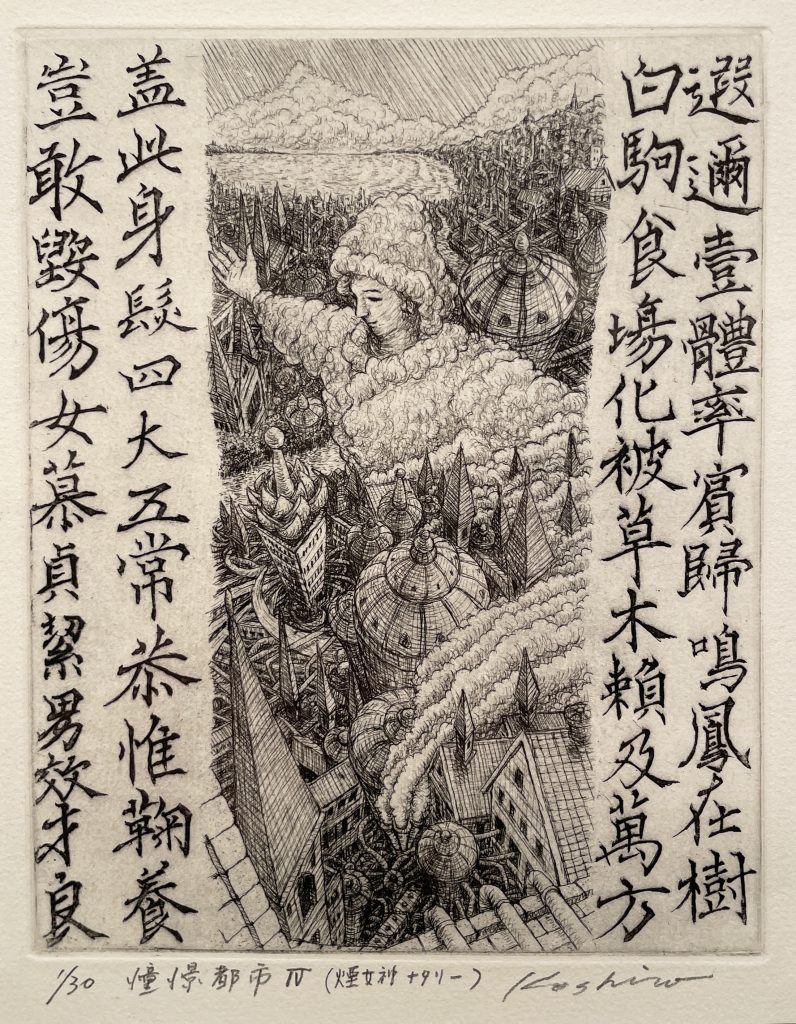 遐邇壹體率賓歸鳴鳳在樹
白駒食塲化被草木賴及萬方
盖此身髮四大五常恭惟鞠養
豈敢毀傷女慕貞絜男效才良
1/30 憧憬都市 Ⅳ (煙女神ナタリー) Koshiro